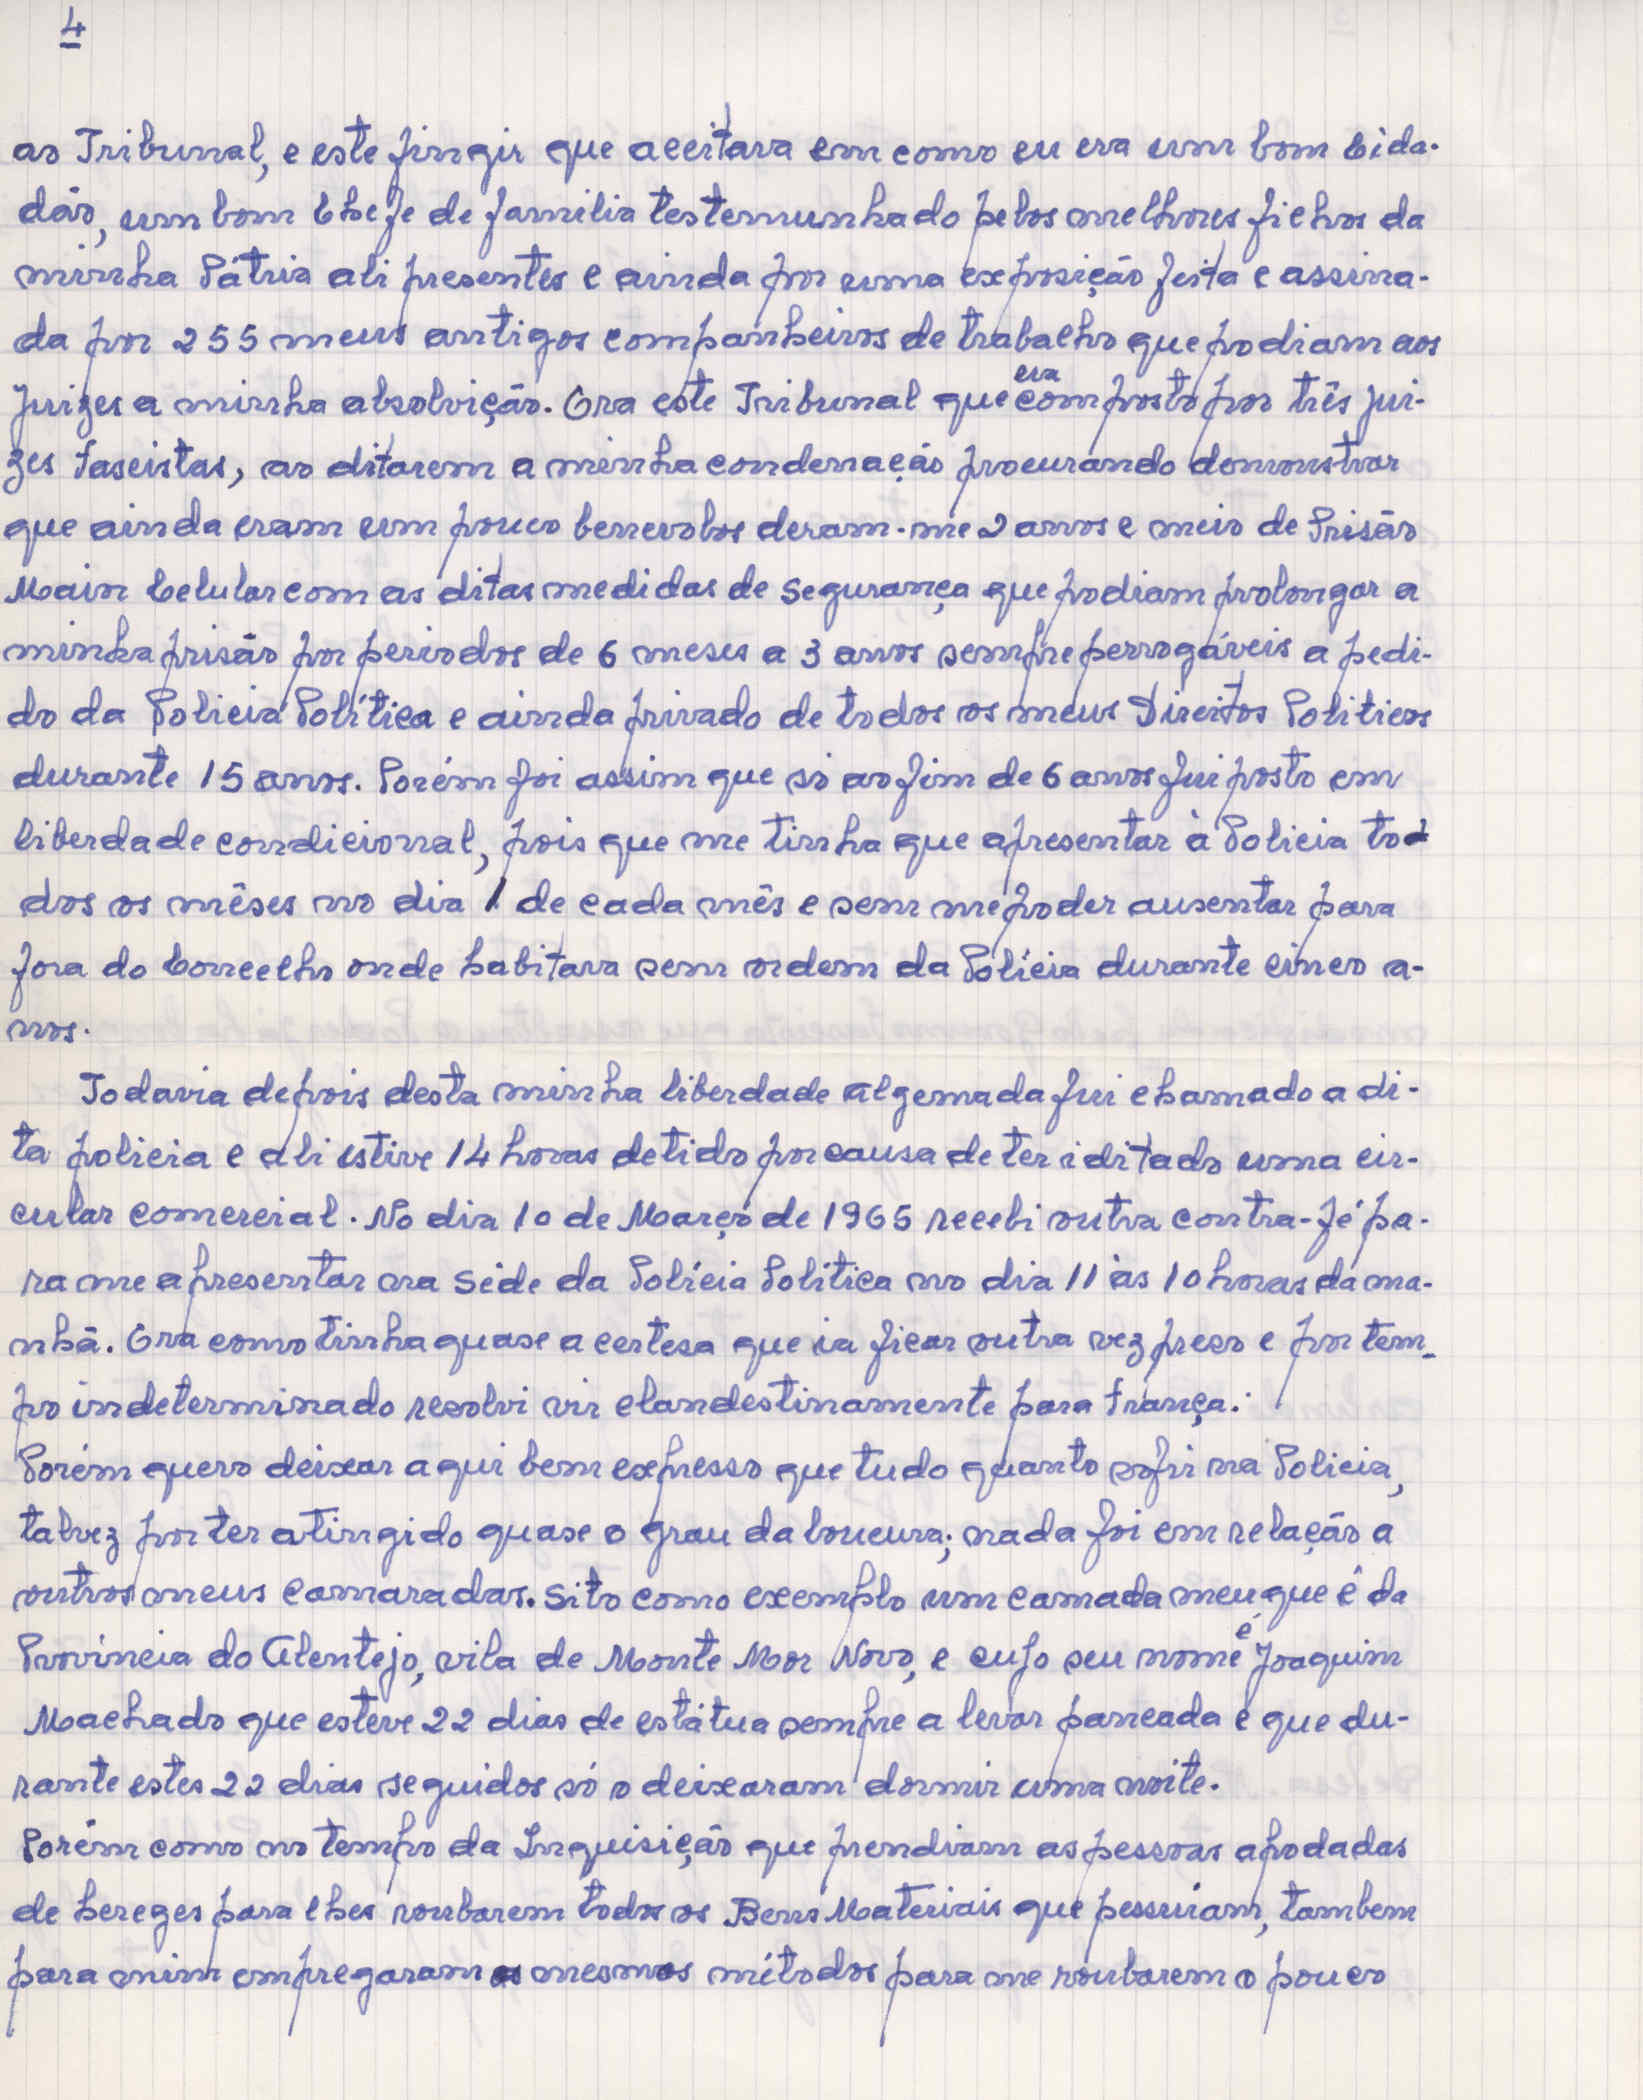 4
ao Tribunal, e este fingir que aceitava em como eu era um bom Cida-
dão, um bom Chefe de familia testemunhado pelos melhores filhos da
minha Pátria ali presentes e ainda por uma exposição feita e assina-
da por 255 meus antigos companheiros de trabalho que podiam aos
Juizes a minha absolvição. Ora este Tribunal que era composto por três jui-
zes fascistas, ao ditarem a minha condenação procurando demonstrar
que ainda eram um pouco benevolos deram-me 2 anos e meio de Prisão
Maior Celular com as ditas medidas de Segurança que podiam prolongar a
minha prisão por periodos de 6 meses a 3 anos sempre perrogáveis a pedi-
do da Policia Política e ainda privado de todos os meus Direitos Politicos
durante 15 anos. Porém foi assim que só ao fim de 6 anos fui posto em
liberdade condicional, pois que me tinha que apresentar à Policia to-
dos os mêses no dia 1 de cada mês e sem me poder ausentar para
fora do Concelho onde habitava sem ordem da Polícia durante cinco a-
nos.
Todavia depois desta minha liberdade algemada fui chamado a di-
ta policia e ali estive 14 horas detido por causa de ter iditado uma cir-
cular comercial. No dia 10 de Março de 1965 recebi outra contra-fé pa-
ra me apresentar na Séde da Polícia Política no dia 11 às 10 horas da ma-
nhã. Ora como tinha quase a certesa que ia ficar outra vez preso e por tem-
po indeterminado resolvi vir clandestinamente para França.
Porém quero deixar aqui bem expresso que tudo quanto sofri na Policia,
talvez por ter atingido quase o grau da loucura; nada foi em relação a
outros meus camaradas. Sito como exemplo um camada meu que é da
Província do Alentejo, vila de Monte Mor Novo, e cujo seu nome é Joaquim
Machado que esteve 22 dias de estátua sempre a levar pancada e que du-
rante estes 22 dias seguidos só o deixaram dormir uma noite.
Porém como no tempo da Inquisição que prendiam as pessoas apodadas
de hereges para lhes roubarem todos os Bens Materiais que pessuíam, tambem
para mim empregaram os mesmos métodos para me roubarem o pouco